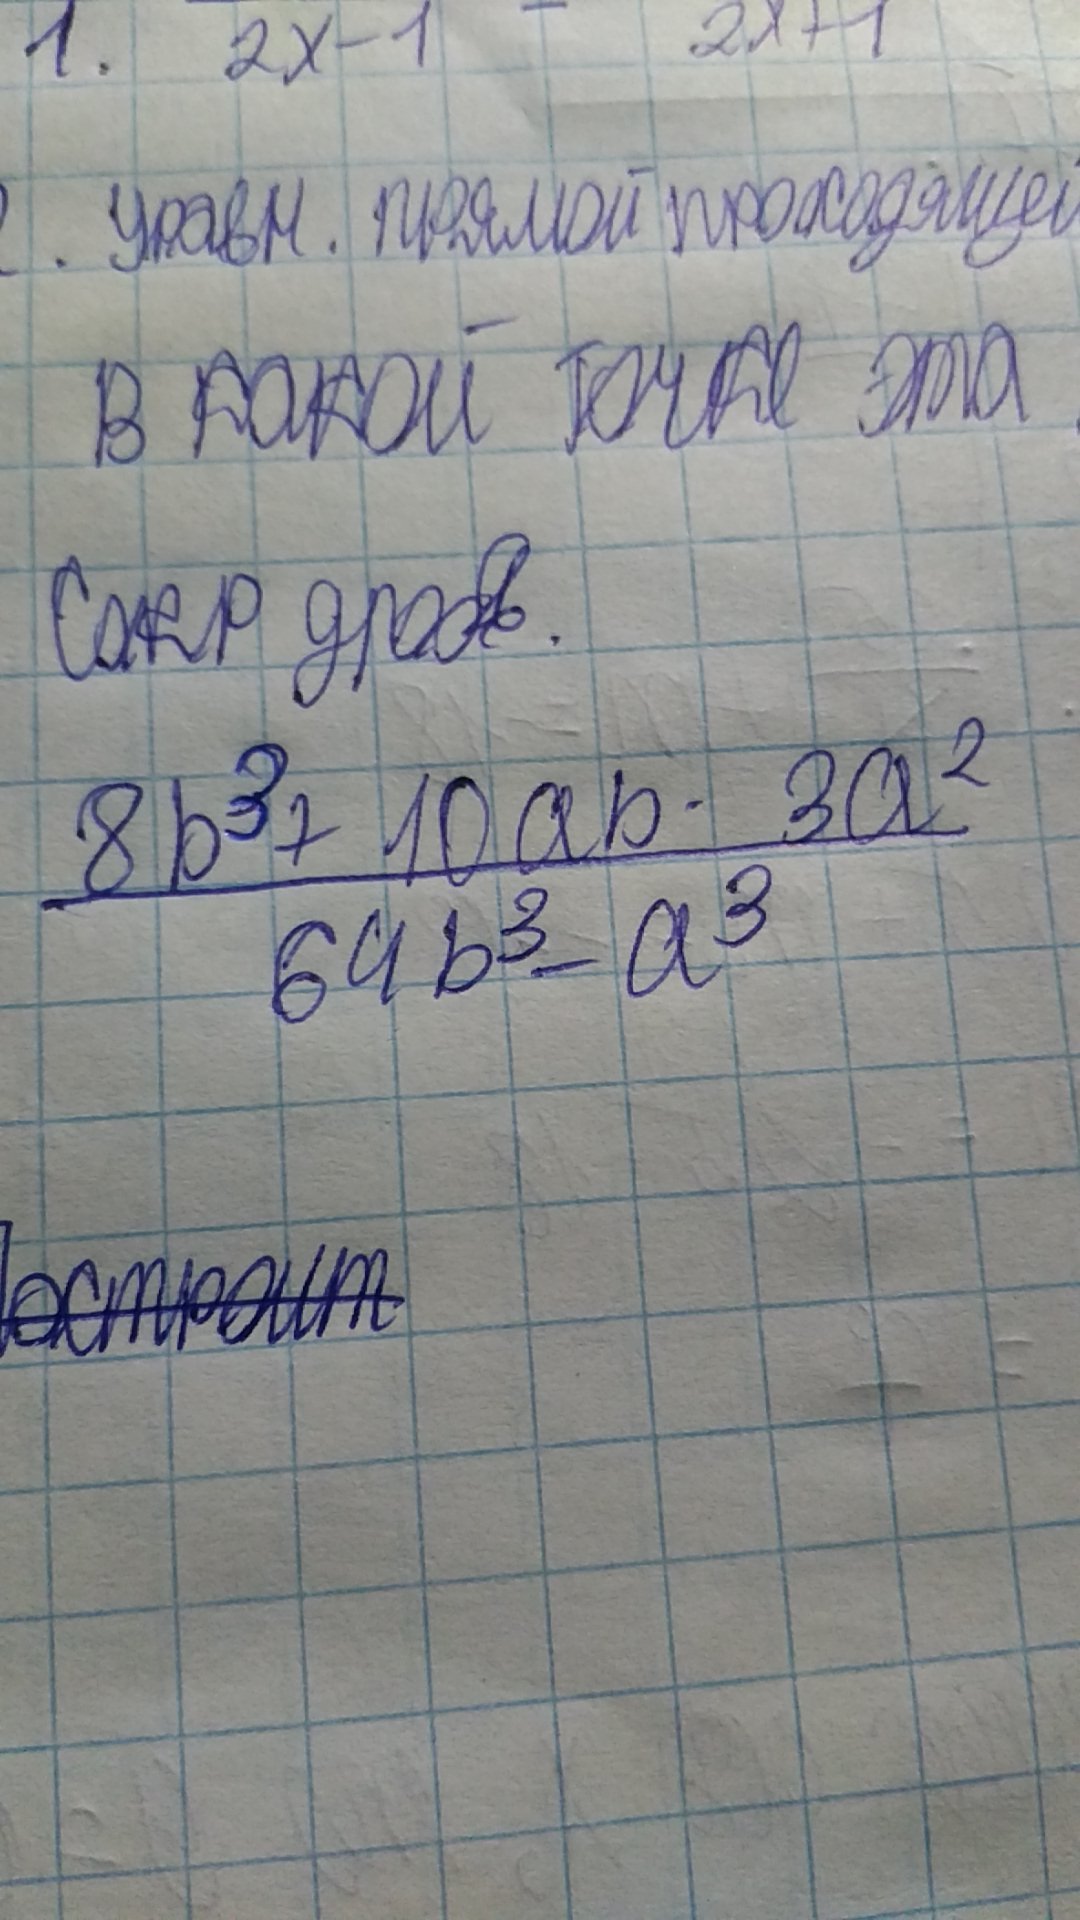 1. 2x-1 - 2x+1
2. уравн. прямой проходящей
в какой точке эта
Сокр дроб.
8b³+ 10ab - 3a²
64b³- a³
Построит